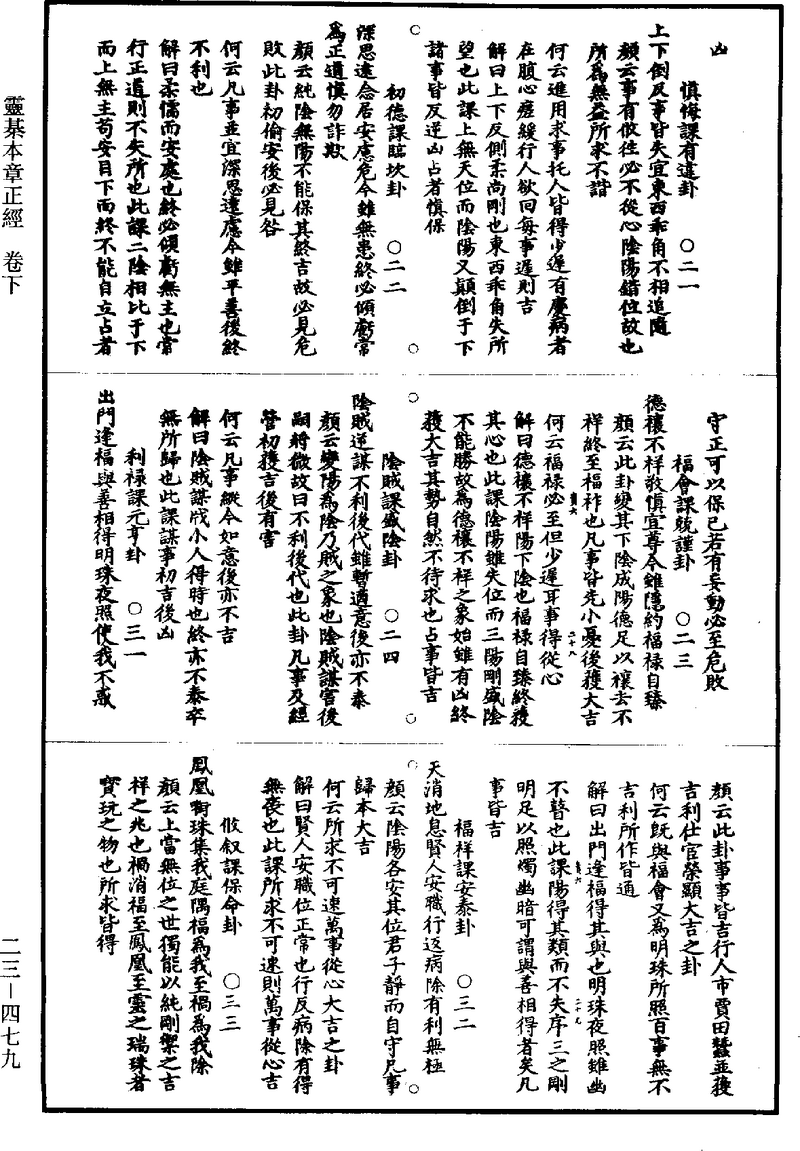 靈棊本章正經　卷下
凶
慎悔課有違卦　〇二一
上下倒反事皆失宜東西乖角不相追隨
顏云事有攸往必不從心陰陽錯位故也
所為無益所求不諧
何云進用求事托人皆得少遲有憂病者
在腹心瘥緩行人欲回每事遲則吉
解曰上下反側柔尚剛也東西乖角失所
望也此課上無天位而陰陽又顛倒于下
諸事皆反逆凶占者慎保
初德課臨坎卦　〇二二
深思遠念居安慮危今雖無患終必傾虧常
為正道慎勿詐欺
顏云純陰無陽不能保其終吉故必見危
敗此卦初偷安後必見咎
何云凡事並宜深思遠慮今雖平善後終
不利也
解曰柔懦而安處也終必傾虧無主也常
行正道則不失所也此課二陰相比于下
而上無主苟安目下而終不能自立占者
守正可以保已若有妄動必至危敗
福會課兢謹卦　〇二三
德禳不祥敬慎宜尊今雖隱約福祿自臻
顏云此卦變其下陰成陽德足以禳去不
祥終至福祚也凡事皆先小憂後獲大吉
何云福祿必至但少遲耳事得從心
解曰德禳不祥陽下陰也福祿自臻終獲
其心也此課陰陽雖失位而三陽剛盛陰
不能勝故為德禳不祥之象始雖有凶終
獲大吉其勢自然不待求也占事皆吉
陰賊課盛陰卦　〇二四
陰賊逆謀不利後代雖暫適意後亦不泰
顏云變陽為陰乃賊之象也陰賊謀害後
嗣將微故曰不利後代也此卦凡事及經
營初獲吉後有害
何云凡事縱今如意後亦不吉
解曰陰賊謀戕小人得時也終亦不泰卒
無所歸也此課謀事初吉後凶
利祿課元亨卦　〇三一
出門逢福與善相得明珠夜照使我不惑
顏云此卦事事皆吉行人市賈田蠶並獲
吉利仕官榮顯大吉之卦
何云既與福會又為明珠所照百事無不
吉利所作皆通
解曰出門逢福得其與也明珠夜照雖幽
不瞽也此課陽得其類而不失序三之剛
明足以照燭幽暗可謂與善相得者矣凡
事皆吉
福祥課安泰卦　〇三二
天消地息賢人安職行返病除有利無極
顏云陰陽各安其位君子靜而自守凡事
歸本大吉
何云所求不可速萬事從心大吉之卦
解曰賢人安職位正常也行反病除有得
無喪也此課所求不可速則萬事從心吉
攸叙課保命卦　〇三三
鳳凰銜珠集我庭隅福為我至禍為我除
顏云上當無位之世獨能以純剛禦之吉
祥之兆也禍消福至鳳凰至靈之瑞珠者
寶玩之物也所求皆得
二三—四七九